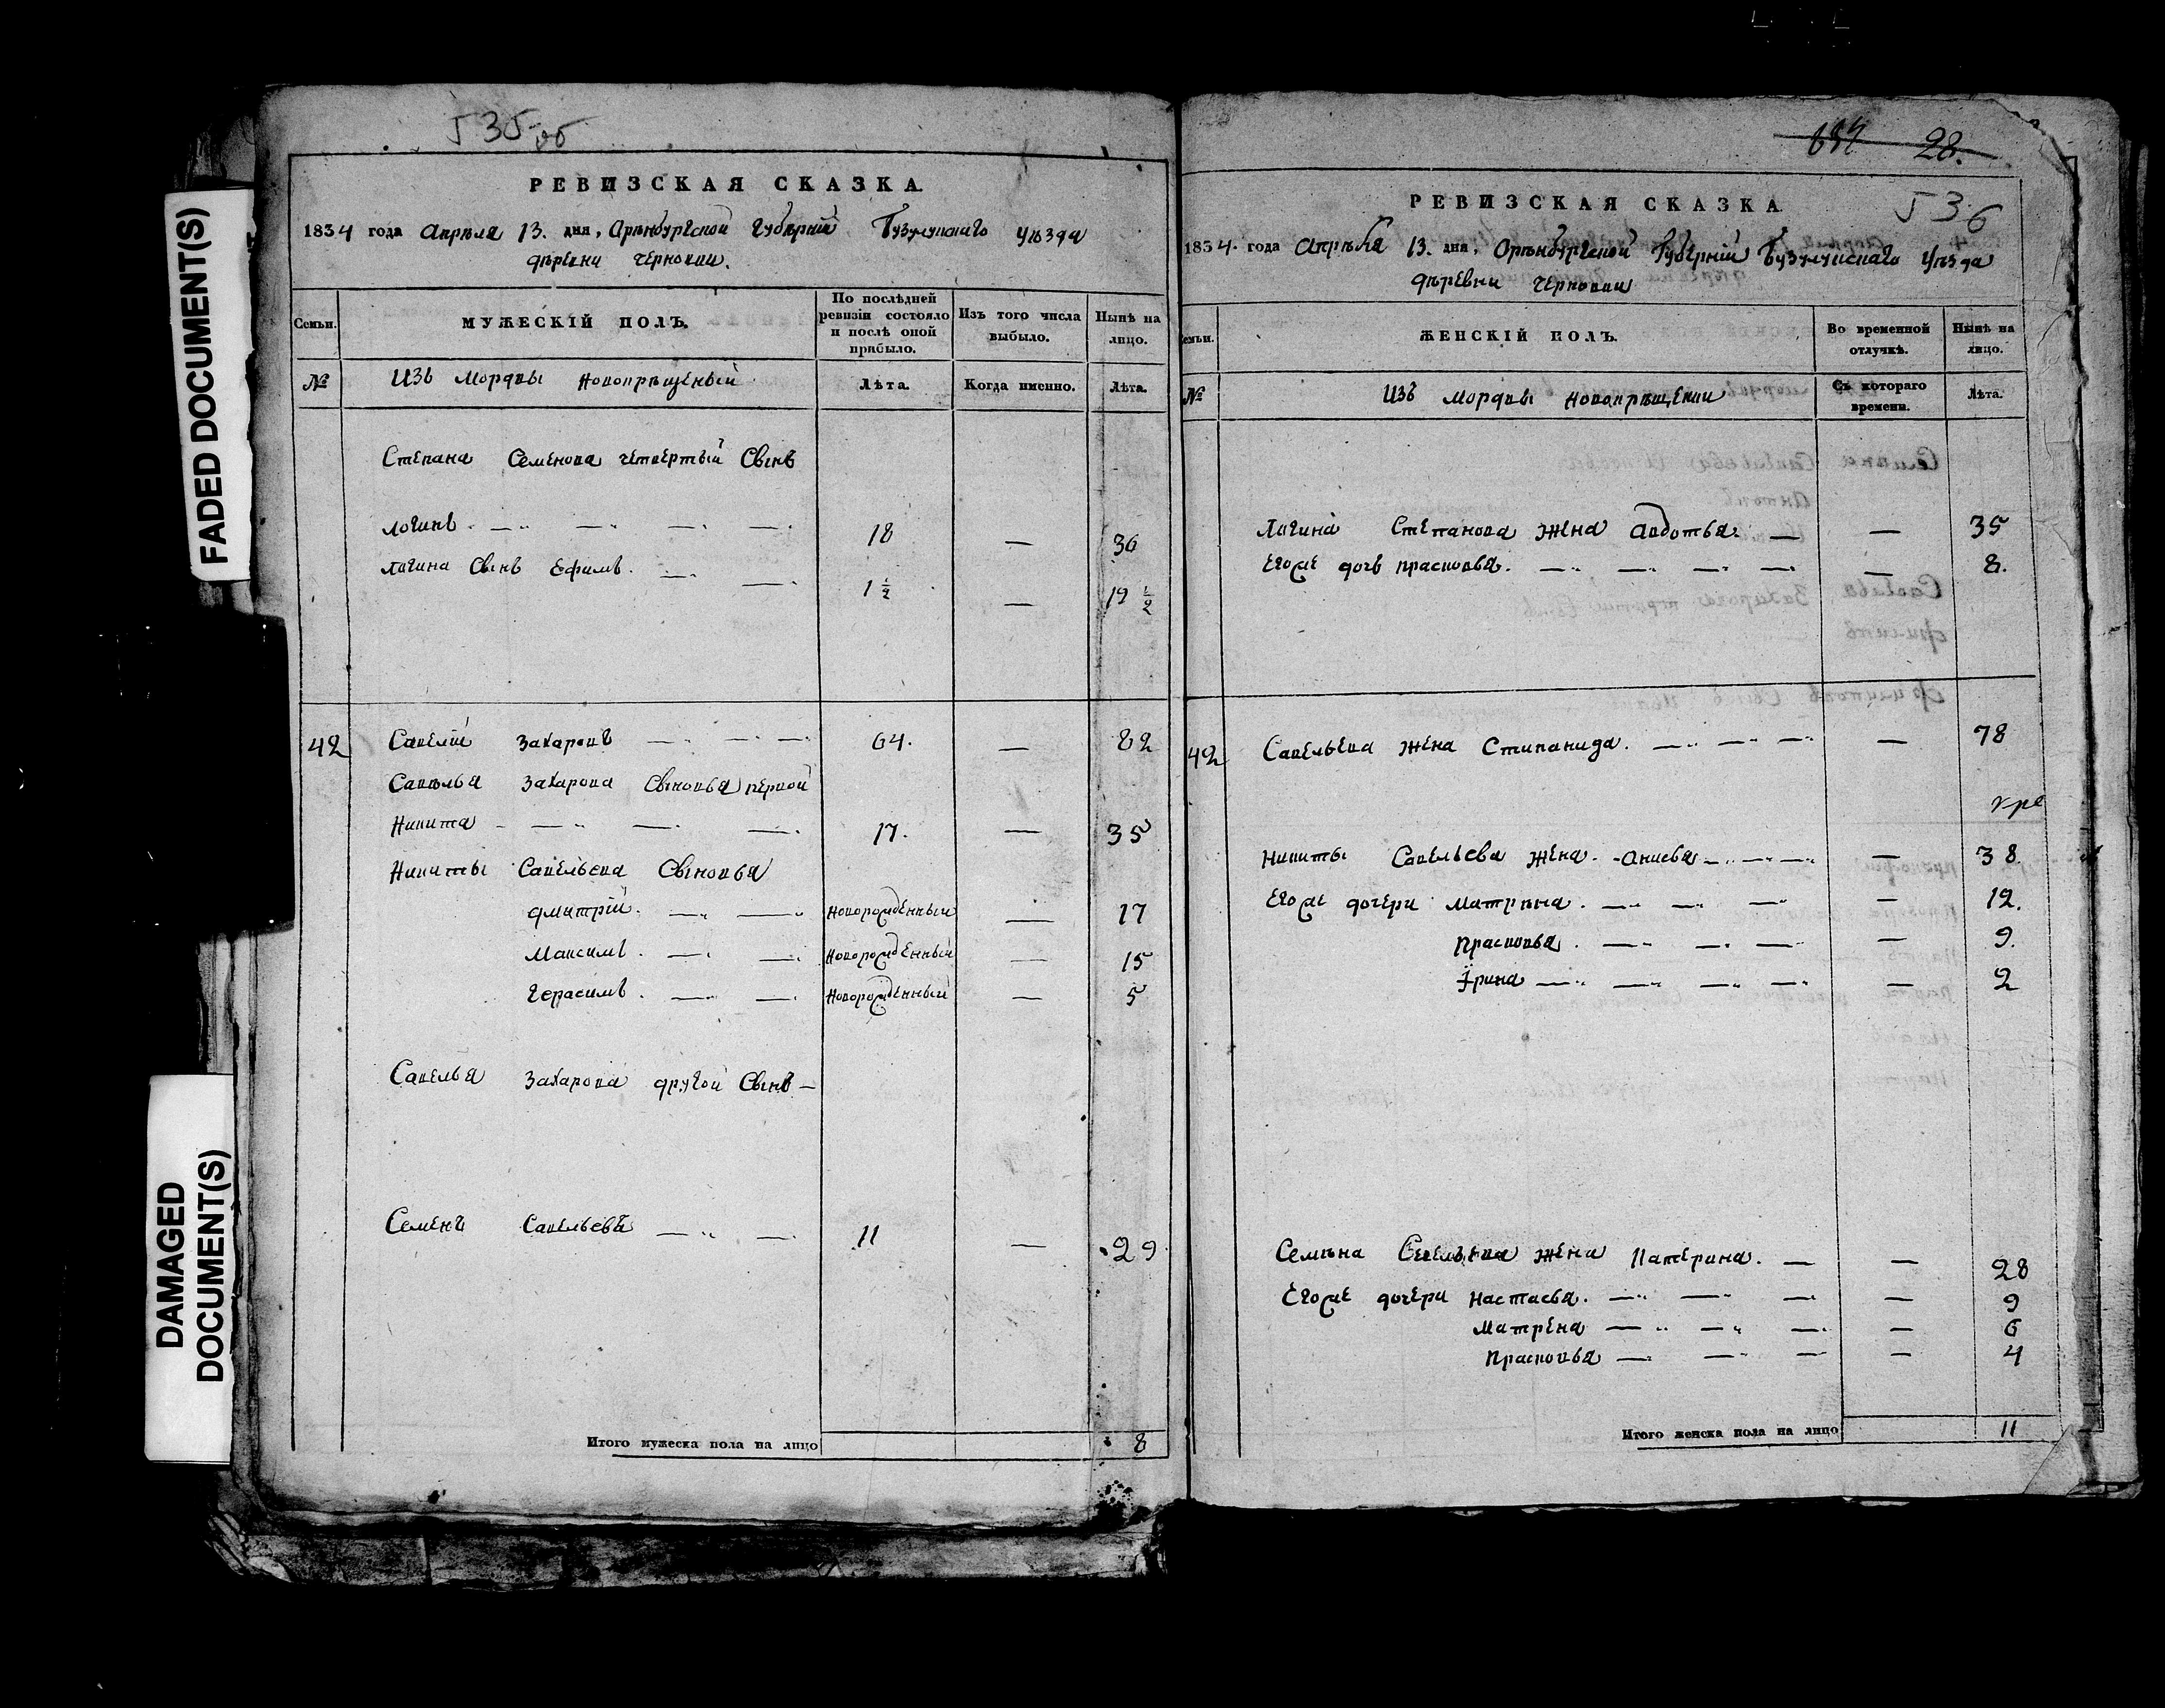 FADED DOCUMENT(S)
DAMAGED DOCUMENT(S)
535 об
РЕВИЗСКАЯ СКАЗКА.
1834 года апреля 13. дня, Оренбургской губерніи Бузулукскаго уѣзда
деревни Черновки.
Семьи.
МУЖЕСКІЙ ПОЛЪ.
По послѣдней ревизіи состояло и послѣ оной прибыло.
Изъ того числа выбыло.
Нынѣ на лицо.
№
изъ мордвы новокрещеный
Лѣта.
Когда именно.
Лѣта.
Степана Семенова четвертый Сынъ
Логинъ 18 — 36
Логина Сынъ Ефимъ. 1 1/2 — 19 1/2
42 Савелій Захаровъ 64. — 82
Савелья Захарова Сыновья первой
Никита 17. — 35
Никиты Савельева Сыновья
Дмитрій. новорожденный — 17
Максимъ. новорожденный — 15
Герасимъ. новорожденный — 5
Савелья Захарова другой Сынъ —
Семенъ Савельевъ 11 — 29
Итого мужеска пола на лицо 8
28.
536
РЕВИЗСКАЯ СКАЗКА
1834. года апрѣля 13. дня, Оренбургской Губерніи Бузулукскаго уѣзда
деревни Черновки
Семьи.
ЖЕНСКІЙ ПОЛЪ.
Во временной отлучкѣ.
Нынѣ на лицо.
№
изъ мордвы новокрещении
Съ котораго времени.
Лѣта.
Логина Степанова жена Авдотья. — 35
Егоже дочь Прасковья. — 8.
42 Савельева жена Стипанида. — 78
Никиты Савельева жена Анисья — 38.
Егоже дочери Матрена. — 12.
Прасковья. — 9.
Ірина — 2
Семена Савельева жена Катерина. — 28
Егоже дочери Настасья. — 9
Матрена — 6
Прасковья — 4
Итого женска пола на лицо 11